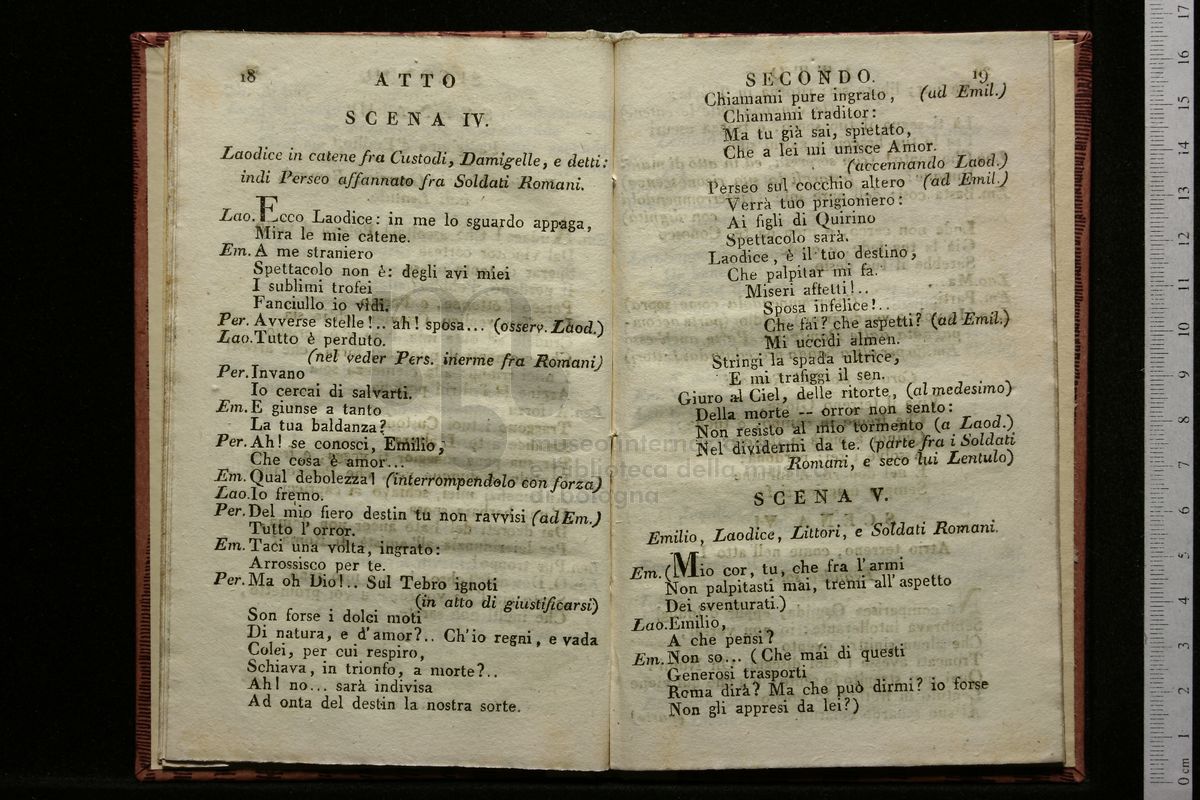 18
ATTO
SCENA IV.
Laodice in catene fra Custodi, Damigelle, e detti:
indi Perseo affannato fra Soldati Romani.
Lao. Ecco Laodice: in me lo sguardo appaga,
Mira le mie catene.
Em. A me straniero
Spettacolo non è: degli avi miei
I sublimi trofei
Fanciullo io vidi.
Per. Avverse stelle!.. ah! sposa... (osserv. Laod.)
Lao. Tutto è perduto.
(nel veder Pers. inerme fra Romani)
Per. Invano
Io cercai di salvarti.
Em. E giunse a tanto
La tua baldanza?
Per. Ah! se conosci, Emilio,
Che cosa è amor...
Em. Qual debolezza! (interrompendolo con forza)
Lao. Io fremo.
Per. Del mio fiero destin tu non ravvisi (ad Em.)
Tutto l'orror.
Em. Taci una volta, ingrato:
Arrossisco per te.
Per. Ma oh Dio!.. Sul Tebro ignoti
(in atto di giustificarsi)
Son forse i dolci moti
Di natura, e d'amor?.. Ch'io regni, e vada
Colei, per cui respiro,
Schiava, in trionfo, a morte?..
Ah! no... sarà indivisa
Ad onta del destin la nostra sorte.
SECONDO.
19
Chiamami pure ingrato, (ad Emil.)
Chiamami traditor:
Ma tu già sai, spietato,
Che a lei mi unisce Amor.
(accennando Laod.)
Perseo sul cocchio altero (ad Emil.)
Verrà tuo prigioniero:
Ai figli di Quirino
Spettacolo sarà.
Laodice, è il tuo destino,
Che palpitar mi fa.
Miseri affetti!..
Sposa infelice!..
Che fai? che aspetti? (ad Emil.)
Mi uccidi almen.
Stringi la spada ultrice,
E mi trafiggi il sen.
Giuro al Ciel, delle ritorte, (al medesimo)
Della morte -- orror non sento:
Non resisto al mio tormento (a Laod.)
Nel dividermi da te. (parte fra i Soldati
Romani, e seco lui Lentulo)
SCENA V.
Emilio, Laodice, Littori, e Soldati Romani.
Em. (Mio cor, tu, che fra l'armi
Non palpitasti mai, tremi all'aspetto
Dei sventurati.)
Lao. Emilio,
A che pensi?
Em. Non so... (Che mai di questi
Generosi trasporti
Roma dirà? Ma che può dirmi? io forse
Non gli appresi da lei?)
museo interna
e biblioteca della musica
di bologna
0 cm 1 2 3 4 5 6 7 8 9 10 11 12 13 14 15 16 17